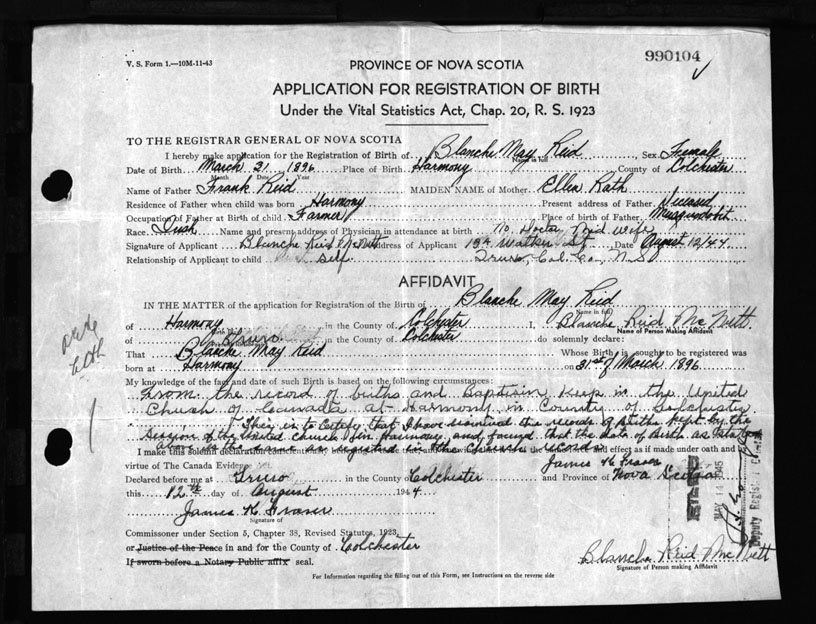 990104
V. S. Form 1.—10M-11-43
PROVINCE OF NOVA SCOTIA
APPLICATION FOR REGISTRATION OF BIRTH
Under the Vital Statistics Act, Chap. 20, R. S. 1923
TO THE REGISTRAR GENERAL OF NOVA SCOTIA
I hereby make application for the Registration of Birth of Blanche May Reid Sex Female
Name in full
Date of Birth March 31 1896 Place of Birth Harmony County of Colchester
Month Day Year
Name of Father Frank Reid MAIDEN NAME of Mother Ellen Rath
Residence of Father when child was born Harmony Present address of Father
Occupation of Father at Birth of child Farmer Place of birth of Father Musquodobit
Race Irish Name and present address of Physician in attendance at birth no Doctor Mid wife
Signature of Applicant Blanche Reid McNutt Address of Applicant Walker St Date August 12/44
Relationship of Applicant to child Self Truro, Col. Co., N. S.
AFFIDAVIT
IN THE MATTER of the application for Registration of the Birth of Blanche May Reid
Name in full
of Harmony in the County of Colchester I, Blanche Reid McNutt
Name of Person Making Affidavit
of Truro in the County of Colchester do solemnly declare:
That Blanche May Reid Whose Birth is sought to be registered was
born at Harmony on 31st of March 1896
My knowledge of the fact and date of such Birth is based on the following circumstances:
From the record of births and Baptism keep in the United
Church of Canada at Harmony in County of Colchester
This is to Certify that I have examined the records of Births kept by the
Session of the United Church in Harmony and found that the date of Birth as stated
above is the same as registered in the Church records
I make this solemn declaration effect as if made under oath and
James K Fraser
virtue of The Canada Evidence
Declared before me at Truro in the County of Colchester and Province of Nova Scotia
this 12th day of August 1944
James K. Fraser
Signature of
Commissioner under Section 5, Chapter 38, Revised Statutes, 1923
or Justice of the Peace in and for the County of Colchester
If sworn before a Notary Public affix seal.
Blanche Reid McNutt
Signature of Person making Affidavit
For Information regarding the filling out of this Form, see Instructions on the reverse side
MAY 1945
Deputy Registrar